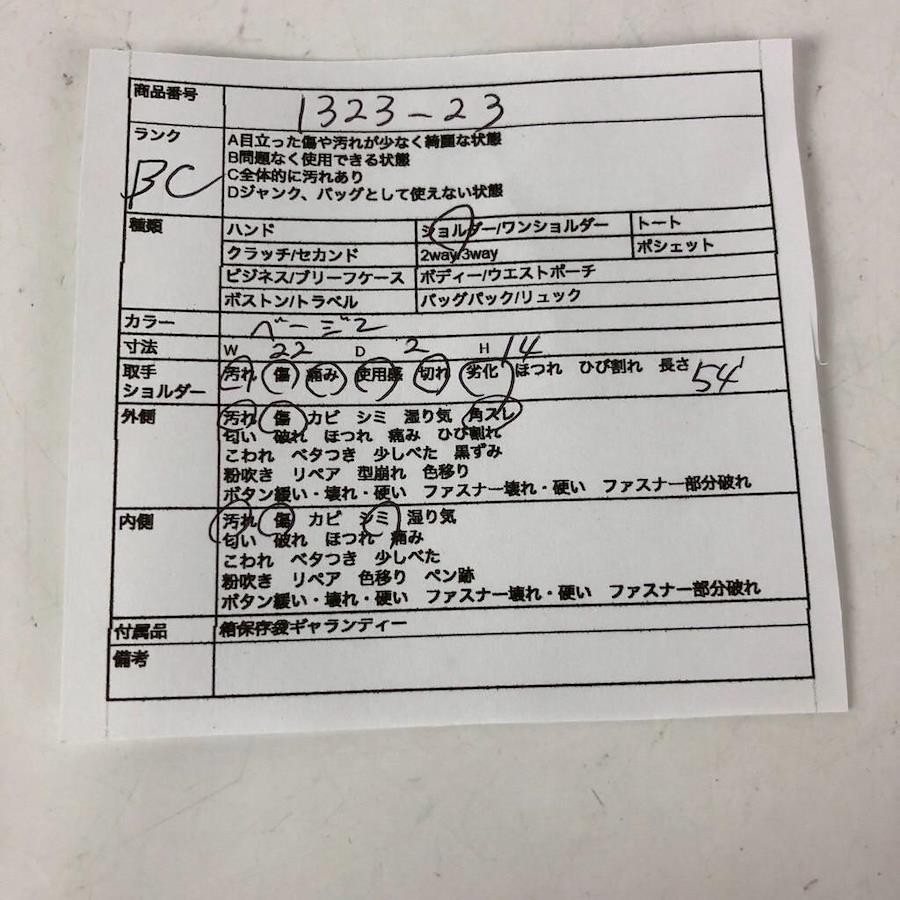 商品番号 1323-23
ランク A目立った傷や汚れが少なく綺麗な状態
B問題なく使用できる状態
BC C全体的に汚れあり
Dジャンク、バッグとして使えない状態
種類 ハンド ショルダー/ワンショルダー トート
クラッチ/セカンド 2way/3way ポシェット
ビジネス/ブリーフケース ボディー/ウエストポーチ
ボストン/トラベル バッグパック/リュック
カラー ベージュ
寸法 W 22 D 2 H 14
取手 汚れ 傷 痛み 使用感 切れ 劣化 ほつれ ひび割れ 長さ 54
ショルダー
外側 汚れ 傷 カビ シミ 湿り気 角スレ
匂い 破れ ほつれ 痛み ひび割れ
こわれ ベタつき 少しべた 黒ずみ
粉吹き リペア 型崩れ 色移り
ボタン緩い・壊れ・硬い ファスナー壊れ・硬い ファスナー部分破れ
内側 汚れ 傷 カビ シミ 湿り気
匂い 破れ ほつれ 痛み
こわれ ベタつき 少しべた
粉吹き リペア 色移り ペン跡
ボタン緩い・壊れ・硬い ファスナー壊れ・硬い ファスナー部分破れ
付属品 箱保存袋ギャランディー
備考